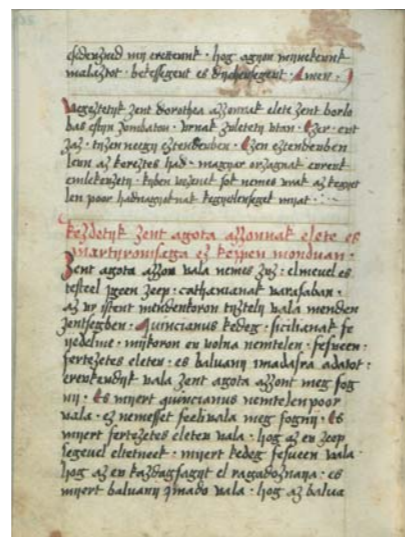 esdeuzned mÿ erettewnk · hog agÿon mÿnekewnk
malaztot · bekesseget es dÿchewseget · Amen ·
Vegeztetÿk zent dorothea azzonnak elete zent borbo
las estin zombaton · vrnak zuleteti vtan · Ezer · ewt
zaz · tizen neegy eztendewben · Ezen eztendewben
leun az kereztes had · magÿar orzagnak ewrewk
emlekezeti · kÿben vezenek sok nemes vrak az kegÿet
len poor hadnagÿoknak kegÿetlensegek mÿat
kezdetÿk zent agota azzonnak elete es
martÿromsaga ez keppen monduan ·
Zent agota azzon vala nemes zÿz · elmeuel es
testeel ÿgeen zeep · cathaniának varasaban ·
az vr istent mendenkoron tiztelÿ vala menden
zentsegben · Quincianus kedeg · siciliának fe
ÿedelme · mÿkoron ew volna nemtelen · fesueen ·
fertezetes eletew · es baluanÿ imadasra adatot ·
erewkewdÿk vala zent agota azzont meg fog
nÿ · Es mÿert quincianus nemtelen poor
vala · ez nemesset feeli vala meg fognÿ · Es
mÿert fertezetes eletew vala · hog az ew zeep
segeuel eltetneek · mÿert kedeg fesueen vala
hog az ew kazdagsagÿt el ragadoznaÿa · es
mÿert baluanÿ ÿmado vala · hog az balua